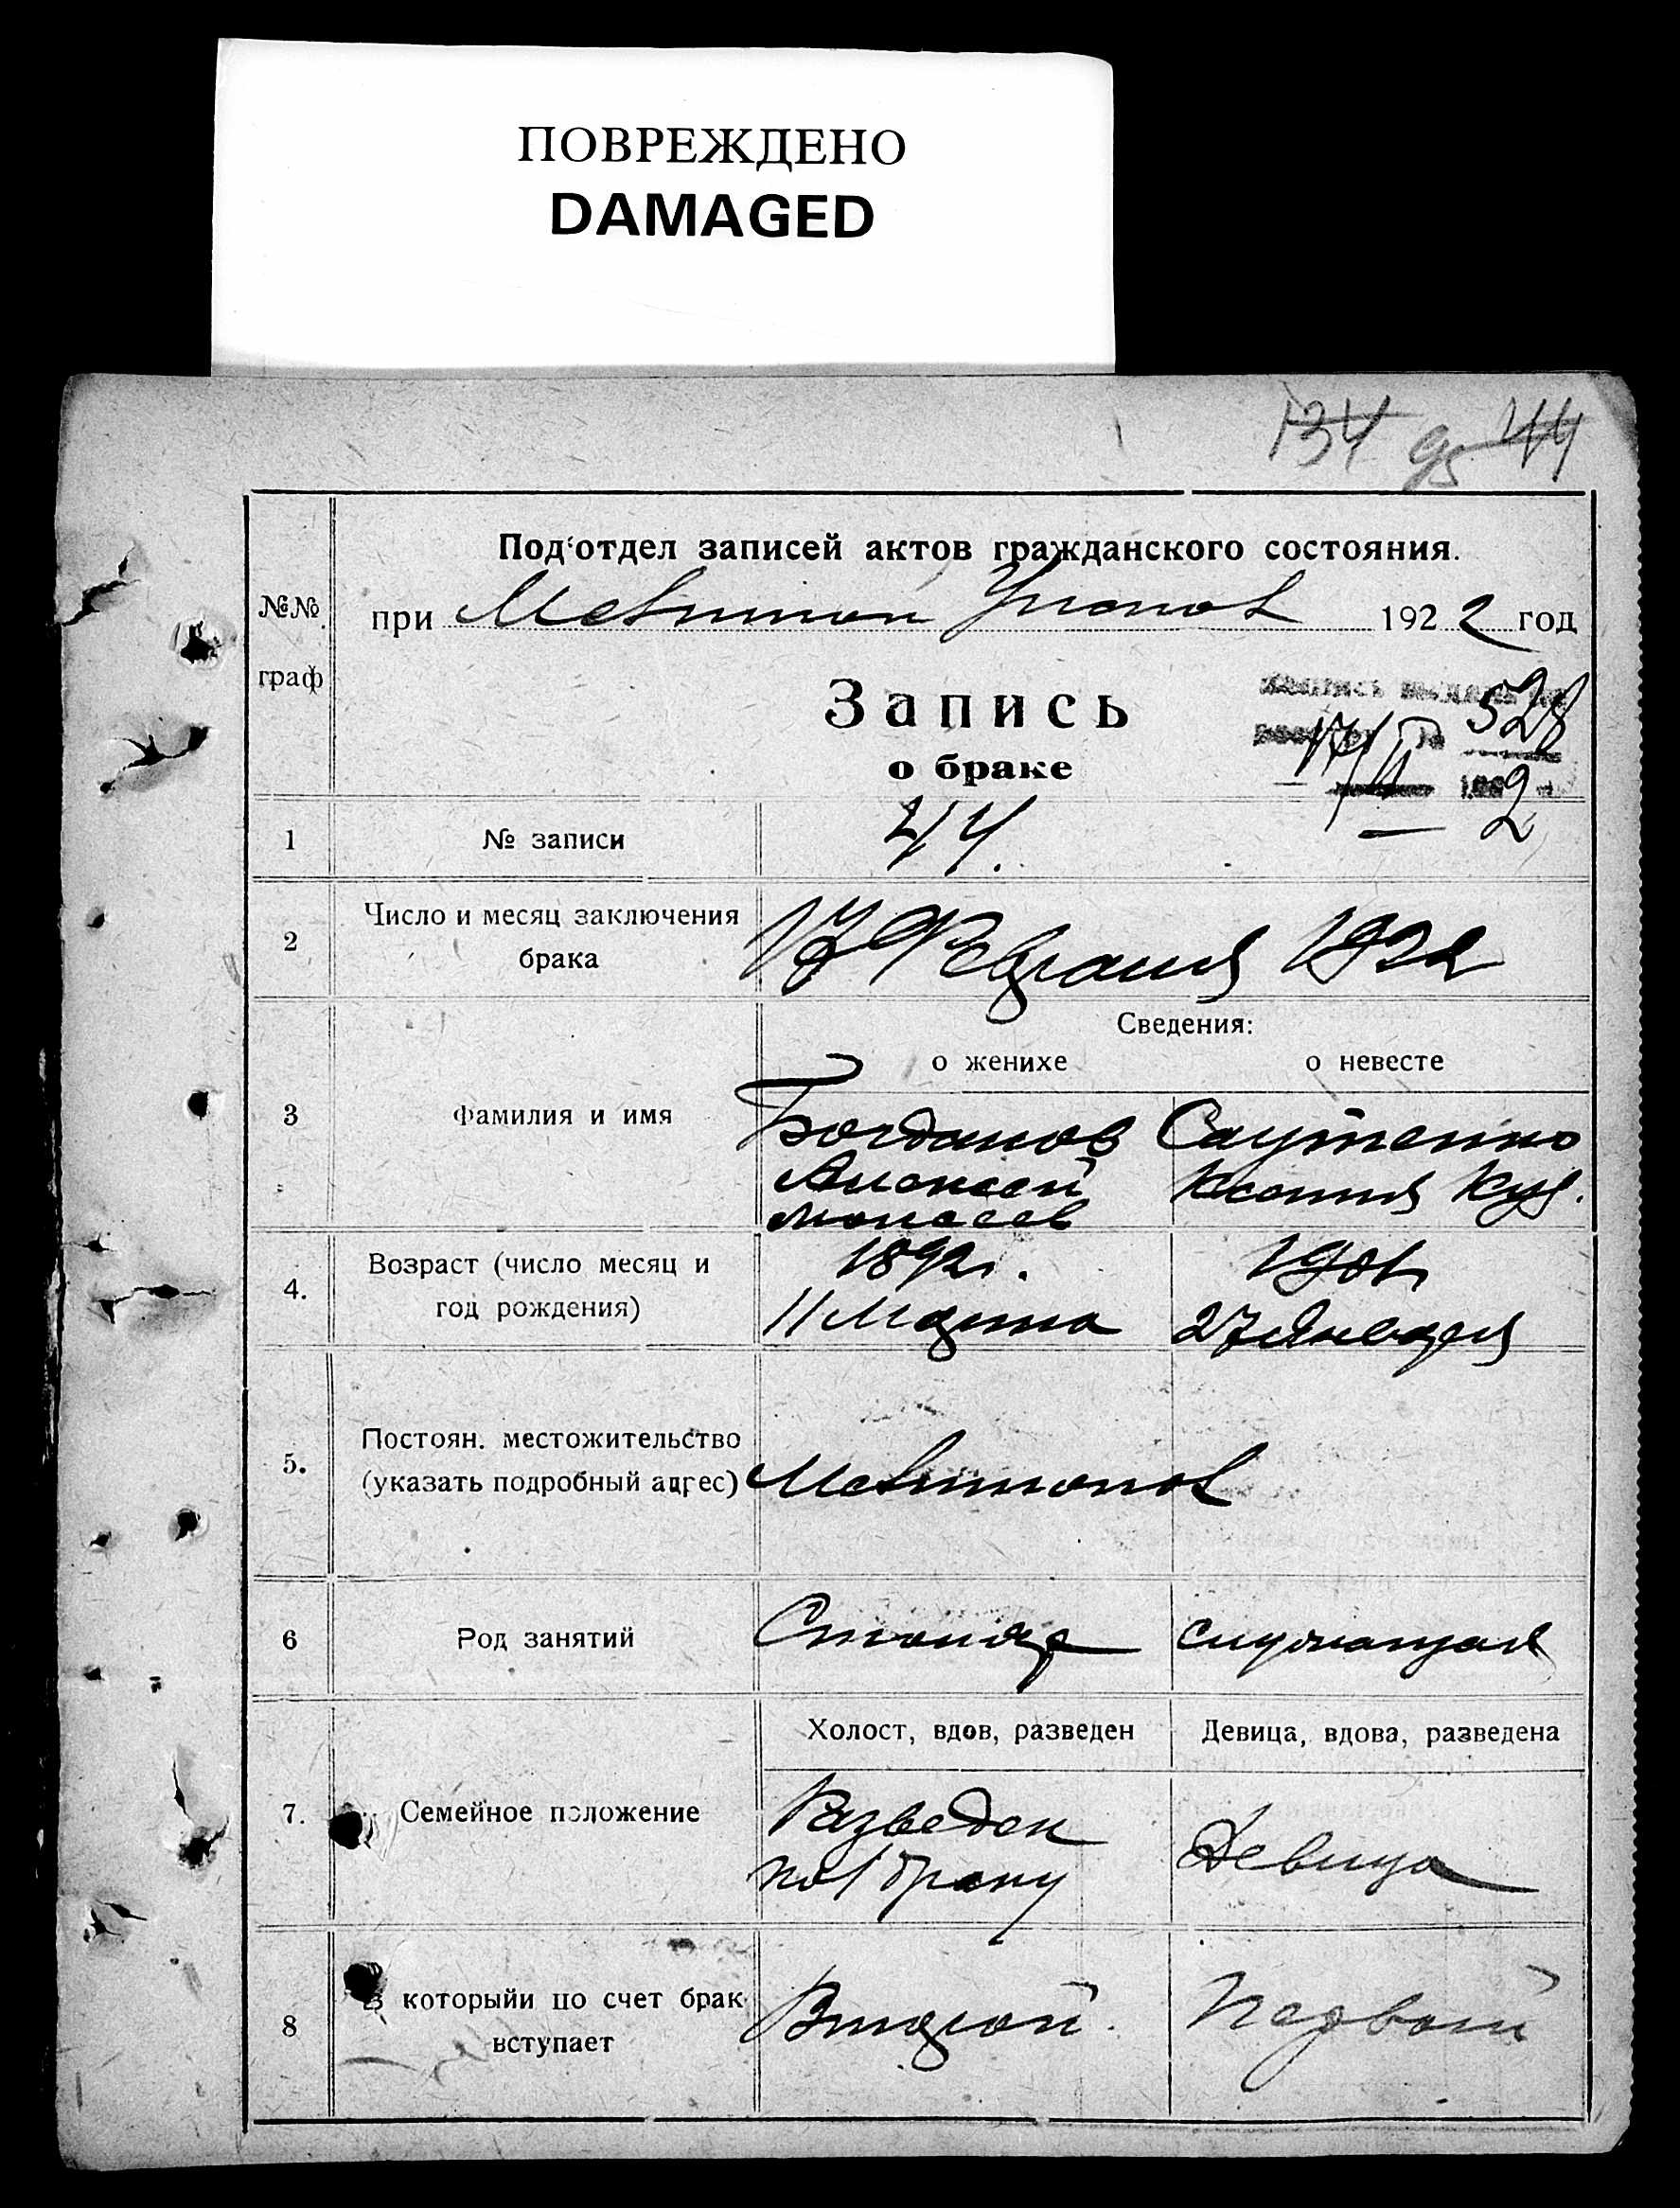 ПОВРЕЖДЕНО
DAMAGED
134 95 44
Под‘отдел записей актов гражданского состояния.
№№ граф
при 1922 год
Запись
о браке
528
17/II
2
1 № записи 44.
2 Число и месяц заключения брака 17 Февраля 1922
Сведения:
о женихе о невесте
3 Фамилия и имя Богданов Саутенко
Алексей Ксения Куз.
4. Возраст (число месяц и год рождения) 1892г. 1901г
11 Марта 27 Января
5. Постоян. местожительство (указать подробный адрес)
6 Род занятий Столяр служащая
Холост, вдов, разведен Девица, вдова, разведена
7. Семейное положение Разведен Девица
по 1 браку
8 В которыйи по счет брак вступает Второй. Первый